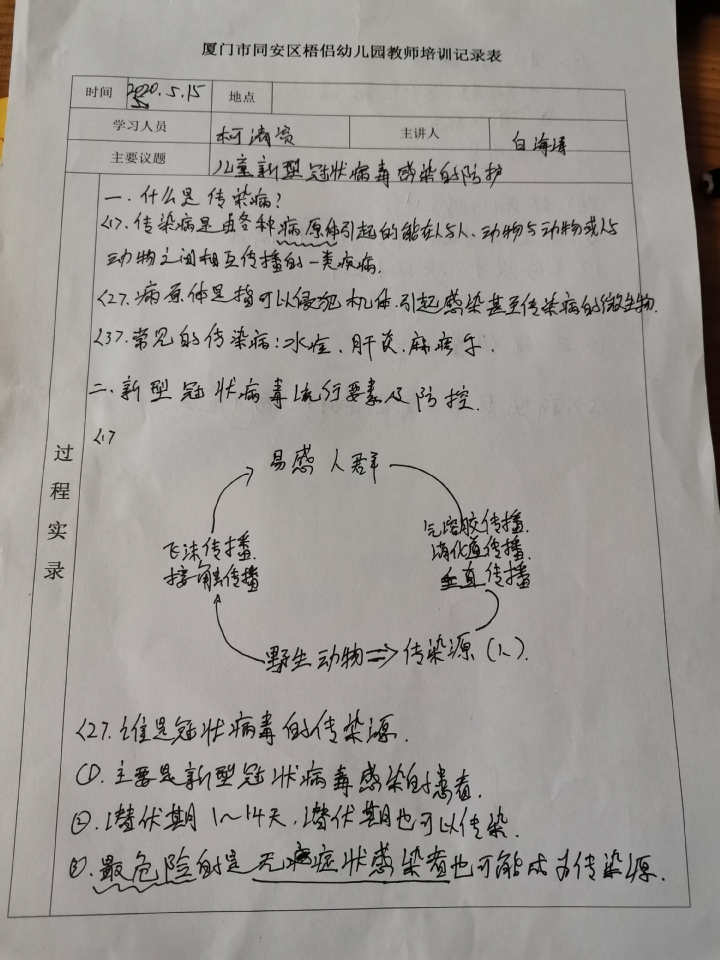 厦门市同安区梧侣幼儿园教师培训记录表
时间 2020.5.15 地点
学习人员 柯 主讲人 白海
主要议题 儿童新型冠状病毒感染的防护
过程实录
一、什么是传染病?
<1>.传染病是由各种病原体引起的能在人与人、动物与动物或人与
动物之间相互传播的一类疾病.
<2>.病原体是指可以侵犯机体.引起感染甚至传染病的微生物.
<3>.常见的传染病:水痘、肝炎、麻疹等.
二、新型冠状病毒流行要素及防控.
<1>
易感人群
飞沫传播.
接触传播
气溶胶传播.
消化道传播.
垂直传播
野生动物⇒传染源(人).
<2>.谁是冠状病毒的传染源.
①.主要是新型冠状病毒感染的患者.
②.潜伏期1~14天.潜伏期也可以传染.
③.最危险的是无症状感染者也可能成为传染源.